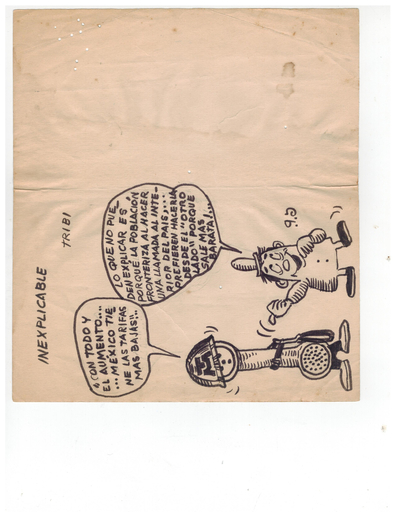 INEXPLICABLE
TRIBI
¿CON TODO Y
EL AUMENTO...
...MÉXICO TIE
NE LAS TARIFAS
MAS BAJAS"...
LO QUE NO PUE
DEN EXPLICAR ES
PORQUÉ LA POBLACIÓN
FRONTERIZA AL HACER
UNA LLAMADA AL INTE-
RIOR DEL PAIS....
PREFIEREN HACERLA
DESDE EL "OTRO
LADO" PORQUE
SALE MAS
BARATA!...